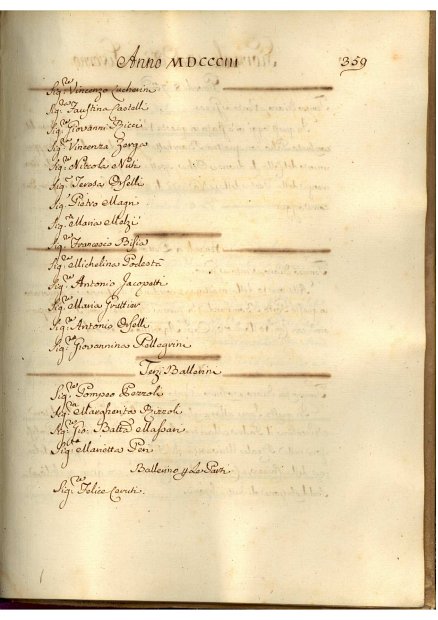 Anno MDCCCIII 359
Sig.re Vincenzo Cucherini
Sig.ra Faustina Castelli
Sig.re Giovanni Bicci
Sig.ra Vincenza Zerga
Sig.re Niccola Nuti
Sig.ra Teresa Orselli
Sig.re Pietro Magri
Sig.ra Maria Melzi
Sig.re Francesco Bisia
Sig.ra Michelina Podestà
Sig.re Antonio Jacopetti
Sig.ra Maria Gruttier
Sig.re Antonio Orselli
Sig.ra Giovannina Pellegrini
Terzi Ballerini
Sig.re Pompeo Pezzoli
Sig.ra Margherita Bizzoli
Sig.re Gio. Batta Massari
Marietta Peri
Ballerino p le Parti
Sig.re Felice Ceruti